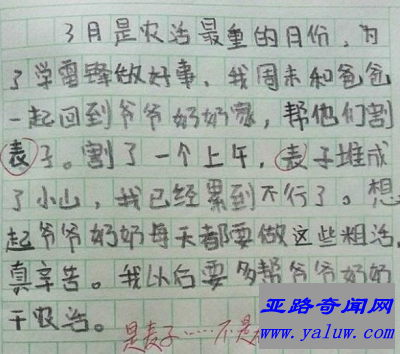 3月是农活最重的月份，为
了学雷锋做好事，我周末和爸爸
一起回到爷爷奶奶家，帮他们割
表子。割了一个上午，表子堆成
了小山，我已经累到不行了。想
起爷爷奶奶每天都要做这些粗活，
真辛苦。我以后要多帮爷爷奶奶
干农活。
是麦子……不是
亚路奇闻网
www.yaluw.com